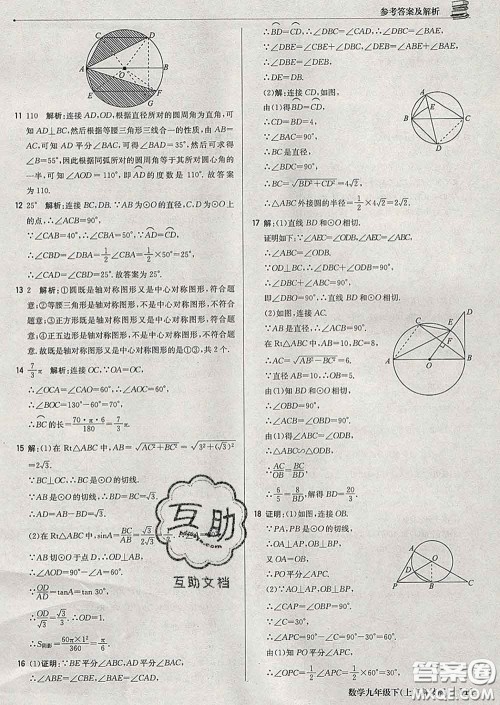 参考答案及解析
11 110 解析:连接AD、OD,根据直径所对的圆周角为直角,可
知AD⊥BC,然后根据等腰三角形三线合一的性质,由AB
=AC,可知AD平分∠BAC,即∠BAD=35°,然后可求得
∠B=55°,因此根据同弧所对的圆周角等于其所对圆心角的
一半,可证∠AOD=110°,即AD的度数是110°.故答案
为110.
12 25° 解析:如图,∵AB为⊙O的直径,点C、D在⊙O上
的点,∴∠ACB=90°,
∵∠CAB=40°,∴∠CBA=50°,∵AD=CD,
∴∠CBD=∠DBA=1/2∠CBA=1/2×50°=25°,
∴∠CBD=∠DBA=25°.故答案为25°.
13 2 解析:①圆既是轴对称图形又是中心对称图形,符合题
意;②等腰三角形是轴对称图形,不是中心对称图形,不符
合题意;③正方形既是轴对称图形又是中心对称图形,符合
题意;④正五边形是轴对称图形,不是中心对称图形,不符
合题意.故既是轴对称图形又是中心对称图形的是①③,共2个.
14 7/3π 解析:连接OC,∵OA=OC,
∴∠OCA=∠CAO=60°,
∴∠BOC=130°-60°=70°,
∴BC的长=70·π·6/180=7/3π.
15 解:(1)在Rt△ABC中,AB=√(AC²+BC²)=√(3²+(√3)²)=
2√3.
∵BC⊥OC,∴BC是⊙O的切线.
∵AB是⊙O的切线,
∴BD=BC=√3,∴AD=AB-BD=√3.
(2)在Rt△ABC中,sinA=BC/AB=√3/2√3
∵AB切⊙O于点D,∴OD⊥AB,
∴∠AOD=90°-∠A=60°.
∵OD/AD=tanA=tan30°,
∴OD/√3=√3/3,∴OD=1.
∴S阴影=60π×1²/360=π/6.
16 (1)证明:∵BE平分∠ABC,AD平分∠BAC,
∴BD=CD,∴∠DBC=∠CAD=∠BAE,
∴∠DBE=∠CBE+∠DBC,∠DEB=∠ABE+∠BAE,
∴∠DBE=∠DEB,
∴DE=DB.
(2)解:连接CD,如图,
由(1)得BD=CD,
∴CD=BD=4.
∵∠BAC=90°,
∴BC是直径,
∴∠BDC=90°,
∴BC=√(BD²+CD²)=4√2,
∴△ABC外接圆的半径=1/2×4√2=2√2.
17 解:(1)直线BD和⊙O相切.
证明如下:
∵∠AEC=∠ODB,∠AEC=∠ABC,
∴∠ABC=∠ODB.
∵OD⊥BC,
∴∠DBC+∠ODB=90°,
∴∠DBC+∠ABC=90°,即∠DBO=90°,
∴直线BD和⊙O相切.
(2)连接AC.
∵AB是直径,
∴∠ACB=90°.
在Rt△ABC中,AB=10,BC=8,
∴AC=√(AB²-BC²)=6.
∵直径AB=10,∴OB=5.
由(1)知BD和⊙O相切,
∴∠OBD=90°.
由(1)得∠ABC=∠ODB,
∴△ABC∽△ODB,
∴AC/OB=BC/BD,
∴6/5=8/BD,解得BD=20/3.
18 证明:(1)如图,连接OB.
∵PA、PB是⊙O的切线,
∴OA⊥AP,OB⊥BP,
又OA=OB,
∴PO平分∠APC.
(2)∵OA⊥AP,OB⊥BP,
∴∠CAP=∠OBP=90°,
∵∠C=30°,
∴∠APC=90°-∠C=90°-30°=60°,
∵PO平分∠APC,
∴∠OPC=1/2∠APC=1/2×60°=30°,
互助
互助文档
数学九年级下(上